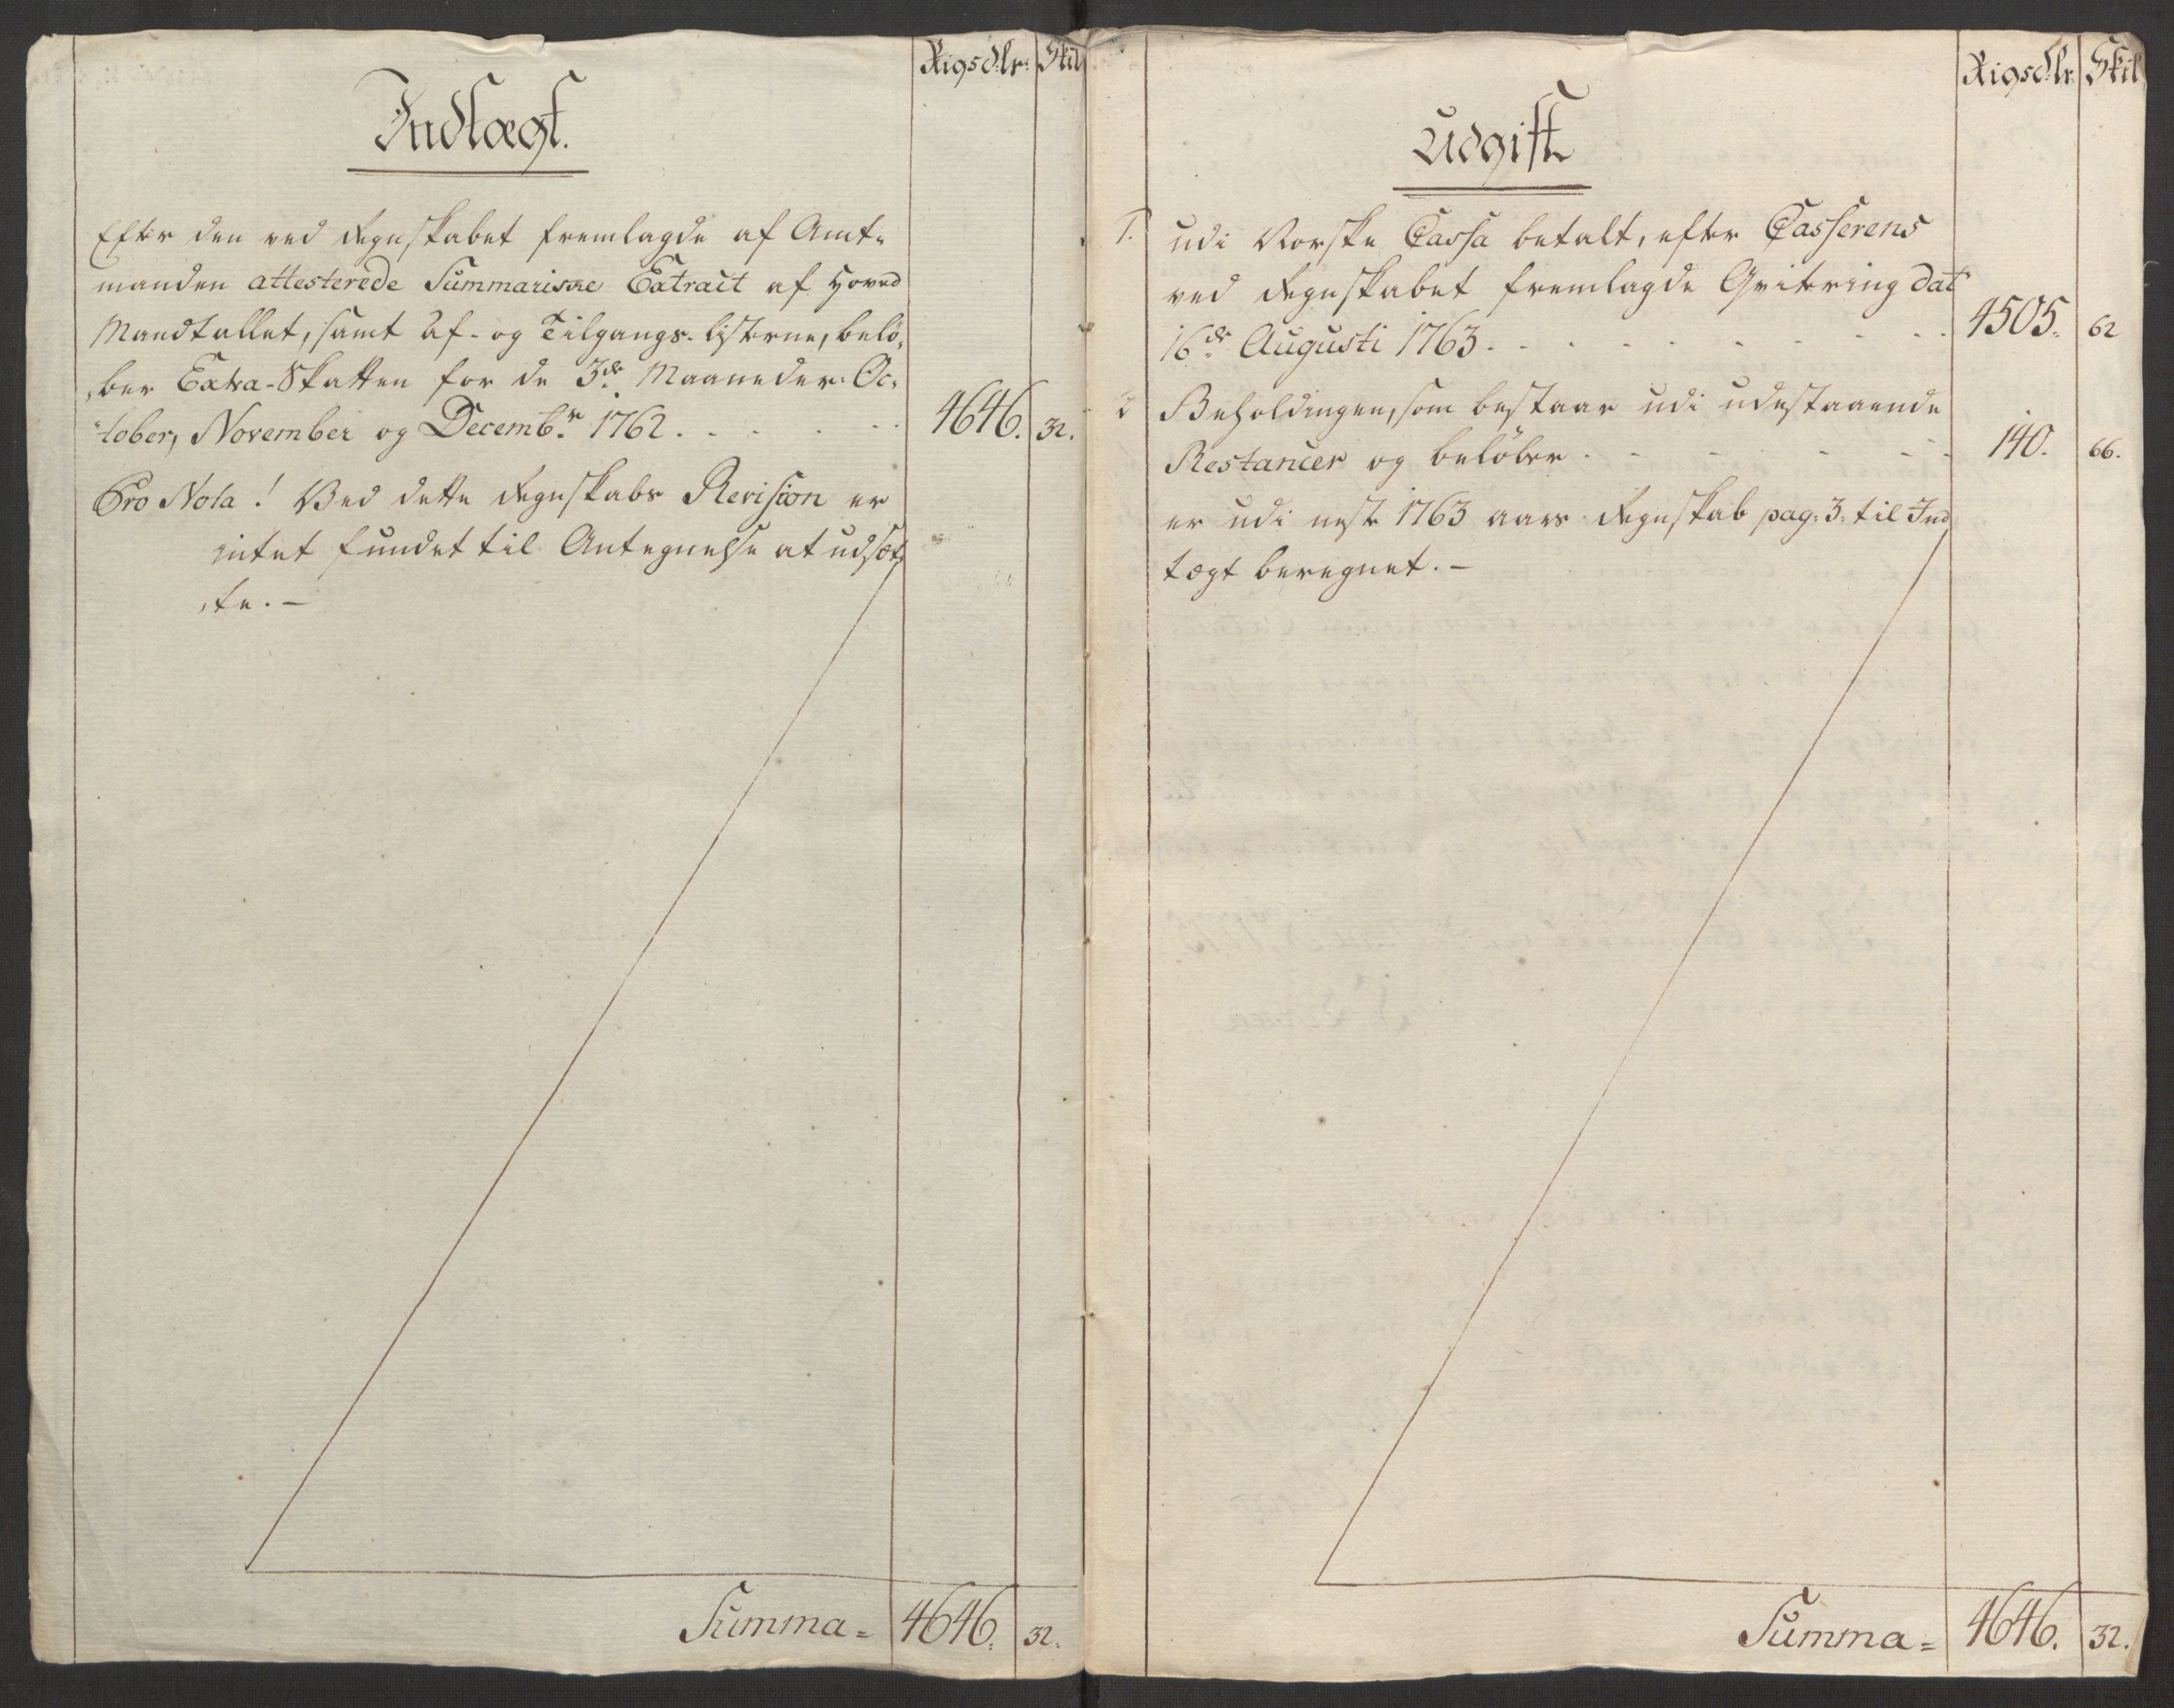 Rigsdlr: Skil
Indtægt.
Efter den ved Regnskabet fremlagde af Amt-
manden attesterede Summariske Extrait af Hoved
Mandtallet, samt Af- og Tilgangs-listerne, belö-
ber Extra-Skatten for de 3de Maaneder Oc-
tober, November og Decembr 1762. 4646. 32.
Pro Nota! Ved dette Regnskabs Revision er
intet fundet til Antegnelse at udsæt-
te. —
Summa = 4646. 32.
Rigsdlr. Skil
Udgift
1. udi Norske Cassa betalt, efter Casserens
ved Regnskabet fremlagde Qvitering dat
16de Augusti 1763. 4505. 62
2 Beholdingen, som bestaar udi udestaaende
Restancer og belöber 140. 66.
er udi nest 1763 aars Regnskab pag: 3. til Ind
tægt beregnet. —
Summa = 4646. 32.